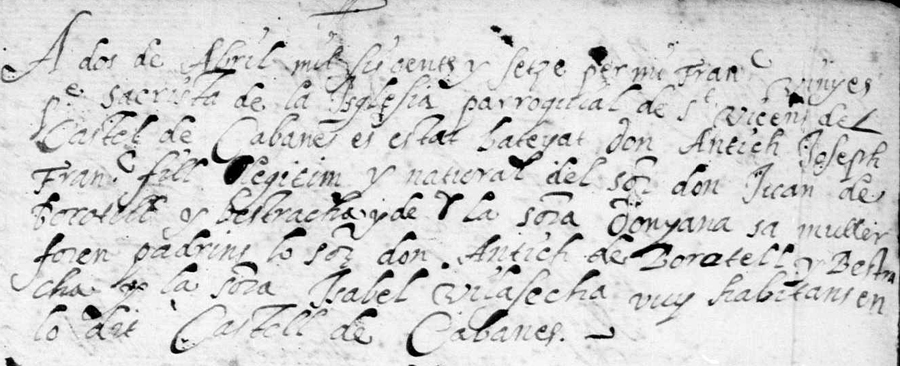 A dos de Abril mil sucents y setze per mi Fran^c Vinyes
P^e sacrista de la Iglesia parroquial de s^t Vicens del
Castel de Cabanes es estat bateyat don Antich Joseph
Fran^c fill legitim y natural del so^r don Juan de
Boratell y bestracha y de la so^ra donyana sa muller
foren padrins lo so^r don Antich de Boratell y Bestra
cha y la so^ra Isabel Vilasecha vuy habitans en
lo dit Castell de Cabanes.